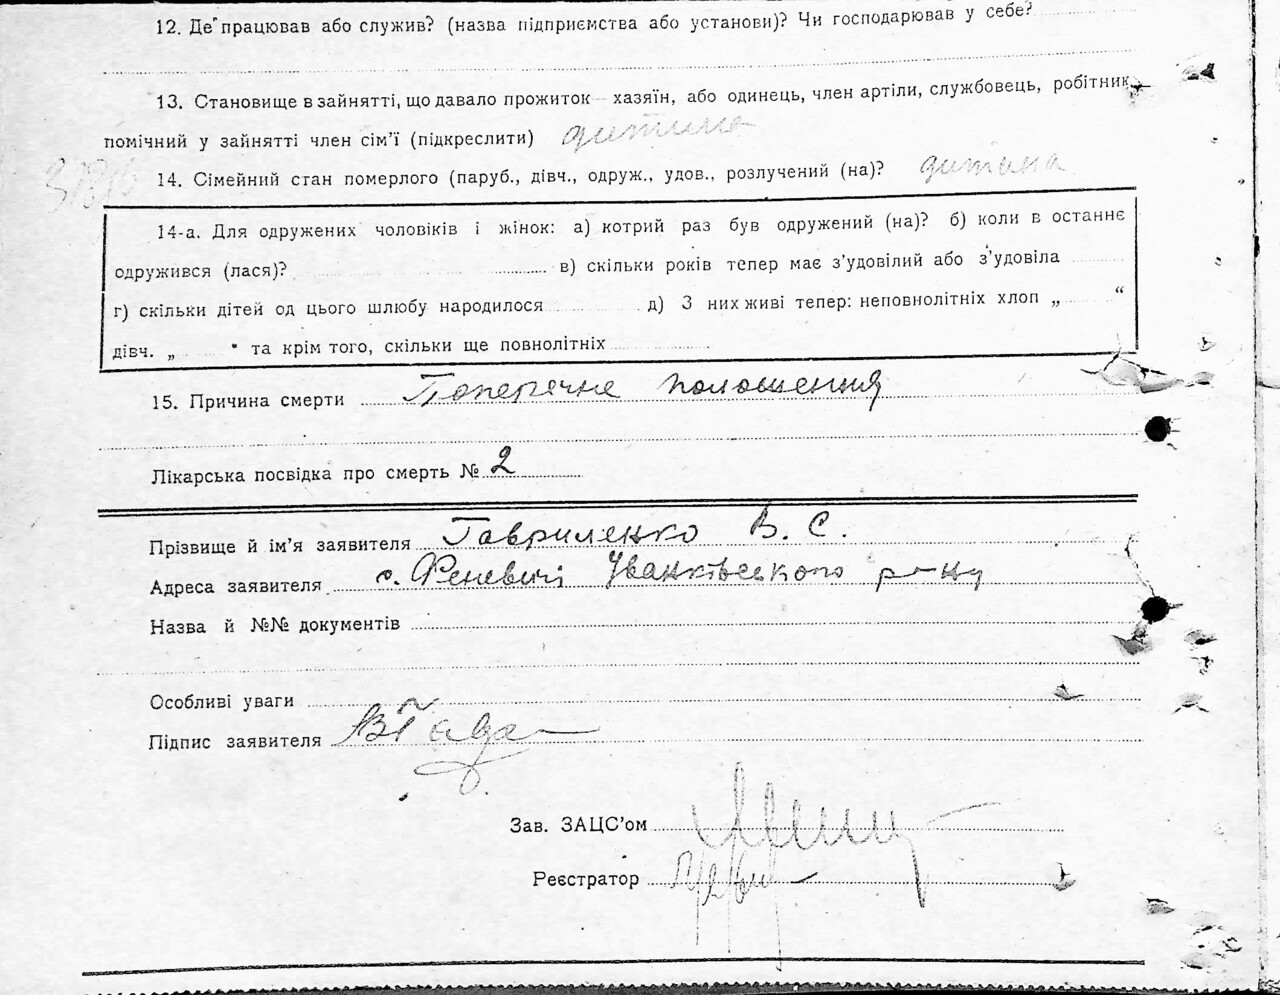 12. Де працював або служив? (назва підприємства або установи)? Чи господарював у себе?
13. Становище в зайнятті, що давало прожиток — хазяїн, або одинець, член артіли, службовець, робітник,
помічний у зайнятті член сім'ї (підкреслити) дитина
14. Сімейний стан померлого (паруб., дівч., одруж., удов., розлучений (на)? дитина
14-а. Для одружених чоловіків і жінок: а) котрий раз був одружений (на)? б) коли в останнє
одружився (лася)? в) скільки років тепер має з'удовілий або з'удовіла
г) скільки дітей од цього шлюбу народилося д) З них живі тепер: неповнолітніх хлоп „ “
дівч. „ “ та крім того, скільки ще повнолітніх
15. Причина смерти Поперечне положення
Лікарська посвідка про смерть № 2
Прізвище й ім'я заявителя Гавриленко В. С.
Адреса заявителя с. Феневичі Іванківського р-ну
Назва й №№ документів
Особливі уваги
Підпис заявителя
Зав. ЗАЦС'ом
Реєстратор